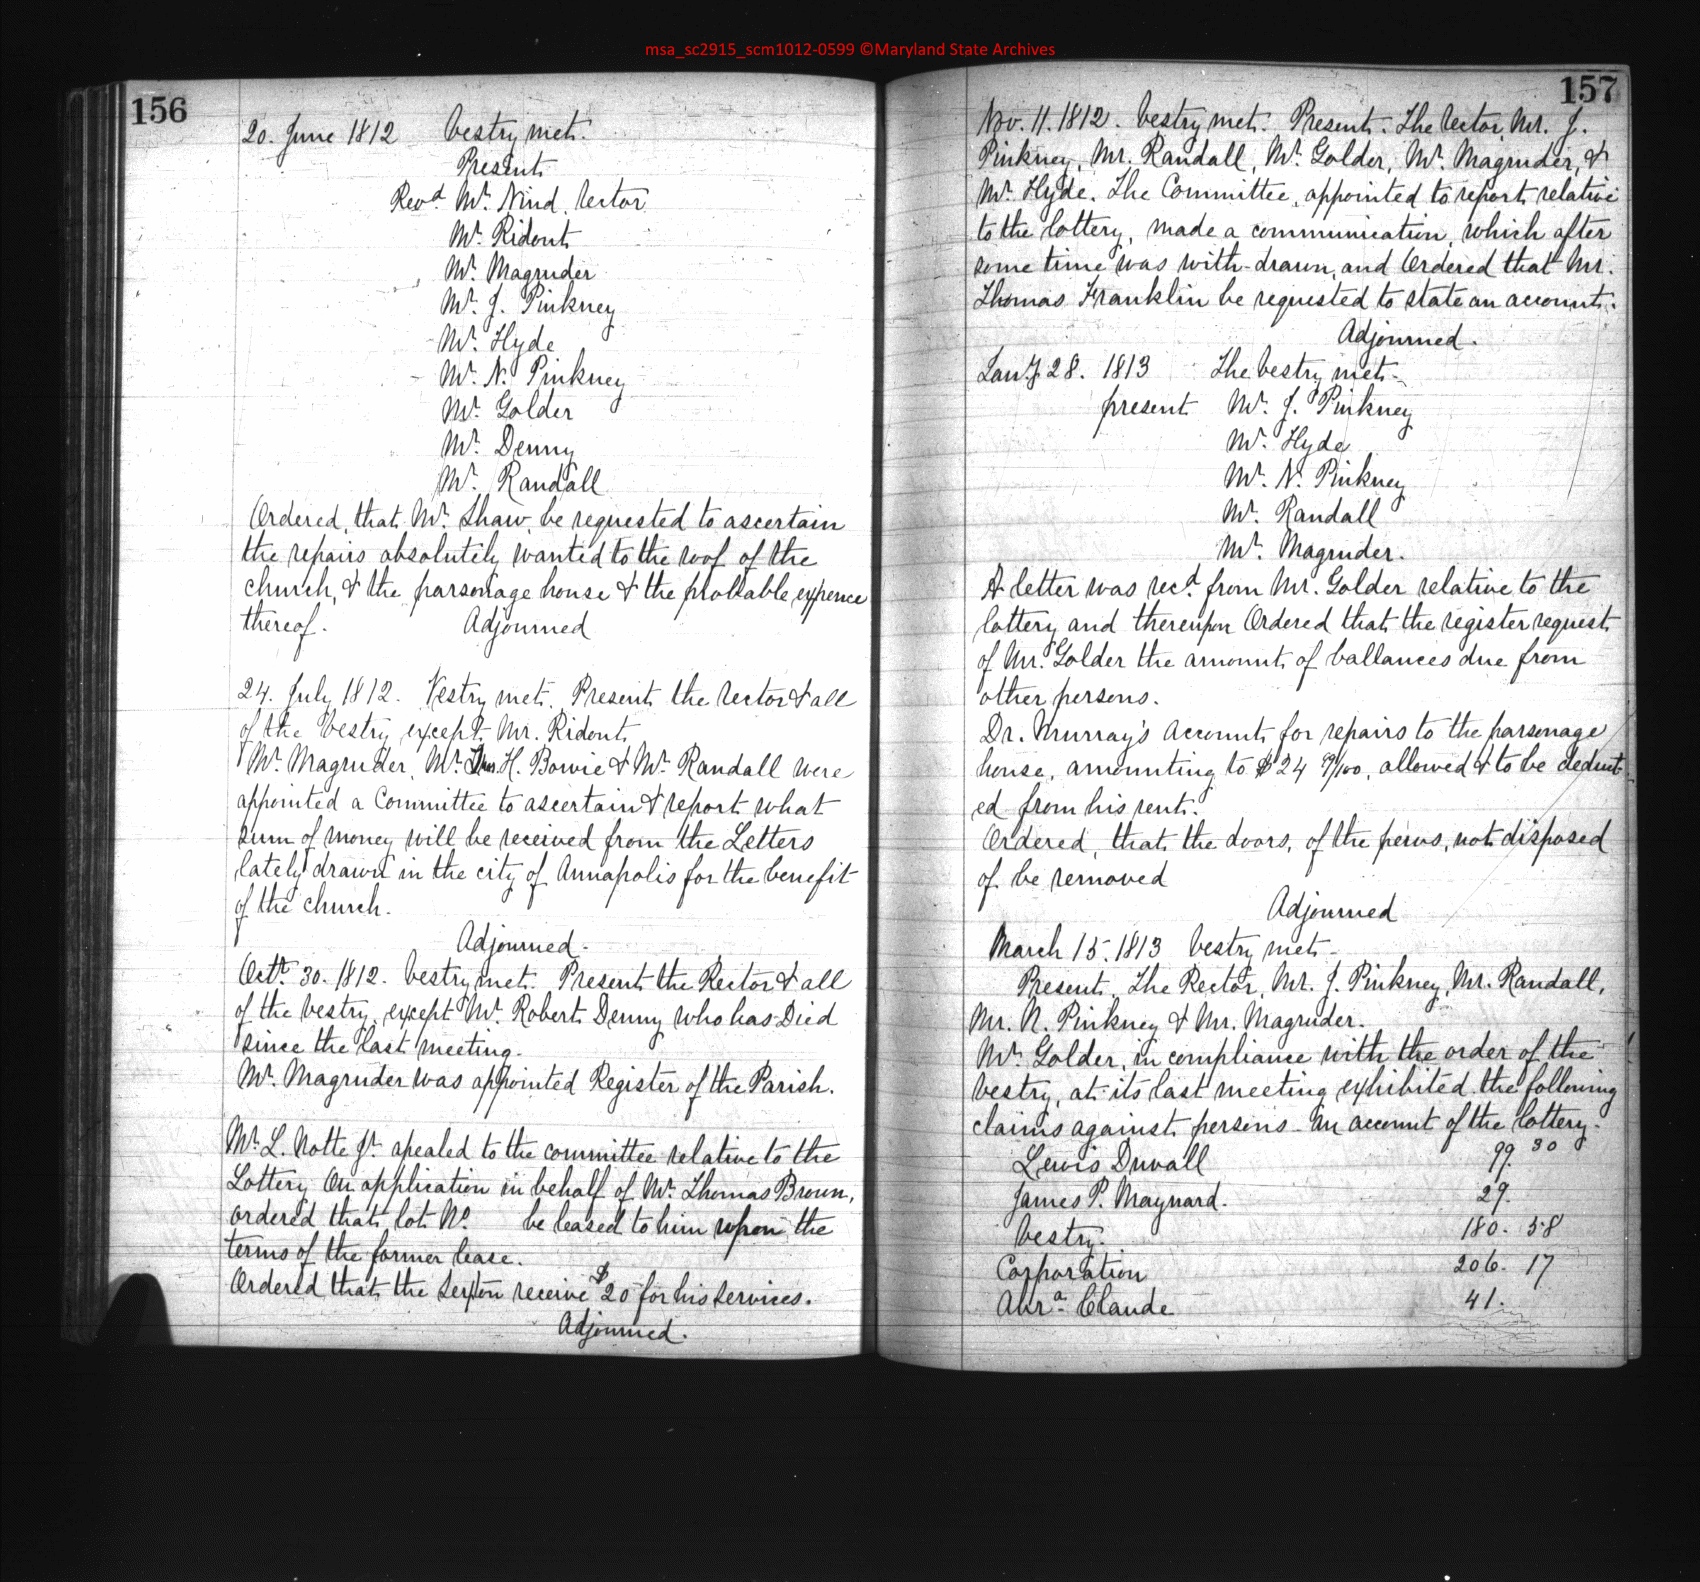 msa_sc2915_scm1012-0599 ©Maryland State Archives
156
20. June 1812 Vestry met.
Present
Revd Mr. Nind, rector
Mr. Ridout
Mr. Magruder
Mr. J. Pinkney
Mr. Hyde
Mr. N. Pinkney
Mr. Golder
Mr. Denny
Mr. Randall
Ordered, that Mr. Shaw, be requested to ascertain
the repairs absolutely wanted to the roof of the
church, & the parsonage house & the probable expence
thereof. Adjourned
24. July 1812. Vestry met. Present the rector & all
of the vestry except Mr. Ridout
Mr. Magruder, Mr. H. Bowie & Mr. Randall were
appointed a Committee to ascertain & report what
sum of money will be received from the Letters
lately drawn in the city of Annapolis for the benefit
of the church.
Adjourned.
Octr. 30. 1812. Vestry met. Present the Rector & all
of the vestry, except Mr. Robert Denny who has Died
since the last meeting.
Mr. Magruder was appointed Register of the Parish.
Mr. L. Notte Jr. apealed to the committee relative to the
Lottery. On application in behalf of Mr. Thomas Brown,
ordered that lot No. be leased to him upon the
terms of the former lease.
Ordered that the Sexton receive $20 for his services.
Adjourned.
157
Nov. 11. 1812. Vestry met. Present. The rector, Mr. J.
Pinkney, Mr. Randall, Mr. Golder, Mr. Magruder, &
Mr. Hyde. The Committee, appointed to report relative
to the lottery, made a communication, which after
some time was with-drawn, and Ordered that Mr.
Thomas Franklin be requested to state an account.
Adjourned.
Jany. 28. 1813 The vestry met.
present Mr. J. Pinkney
Mr. Hyde
Mr. N. Pinkney
Mr. Randall
Mr. Magruder.
A letter was recd. from Mr. Golder relative to the
lottery and thereupon Ordered that the register request
of Mr. Golder the amount of ballances due from
other persons.
Dr. Murray's account for repairs to the parsonage
house, amounting to $24 9/100, allowed & to be deduct
ed from his rent.
Ordered, that the doors, of the pews, not disposed
of be removed
Adjourned
March 15. 1813 Vestry met.
Present, The Rector, Mr. J. Pinkney, Mr. Randall,
Mr. N. Pinkney & Mr. Magruder.
Mr. Golder, in compliance with the order of the
vestry, at its last meeting exhibited the following
claims against persons on account of the lottery.
Lewis Duvall 99. 30
James P. Maynard. 29.
Vestry. 180. 58
Corporation 206. 17
Abra. Claude 41.